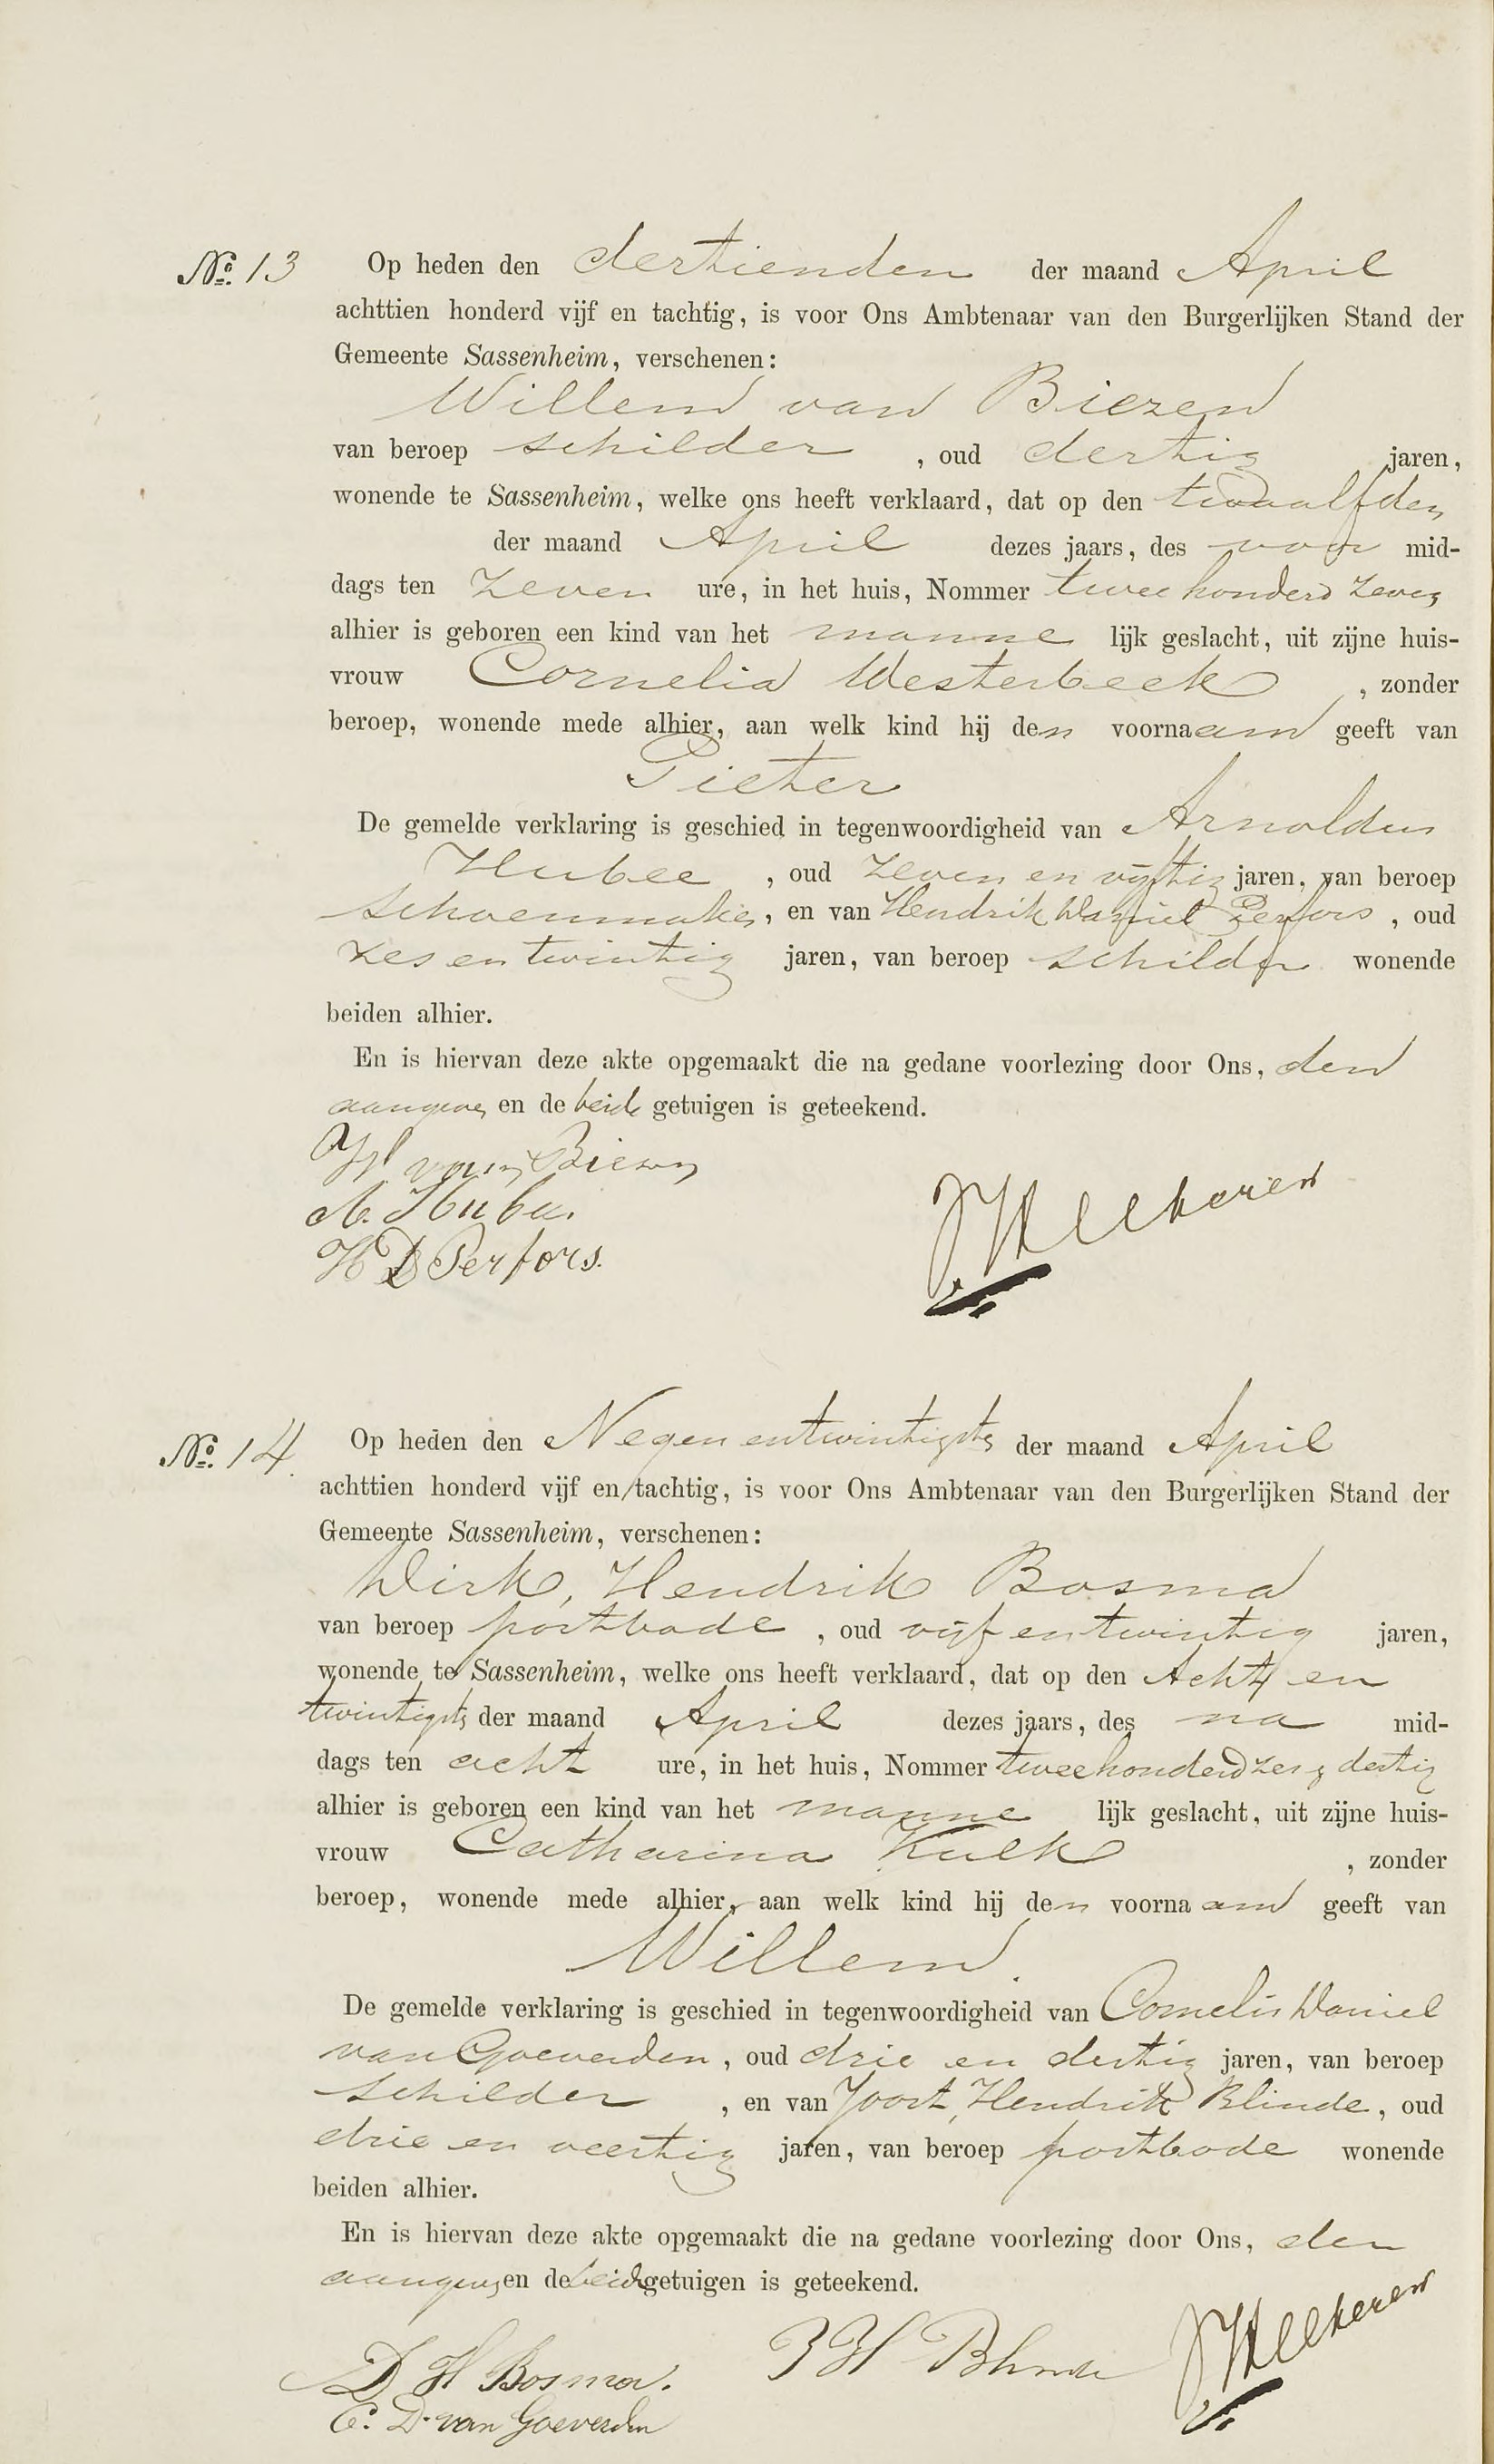 No. 13 Op heden den dertienden der maand April
achttien honderd vijf en tachtig, is voor Ons Ambtenaar van den Burgerlijken Stand der
Gemeente Sassenheim, verschenen:
Willem van Biezen
van beroep schilder, oud dertig jaren,
wonende te Sassenheim, welke ons heeft verklaard, dat op den twaalfden
der maand April dezes jaars, des voor mid-
dags ten zeven ure, in het huis, Nommer twee honderd zeven
alhier is geboren een kind van het manne lijk geslacht, uit zijne huis-
vrouw Cornelia Westerbeek, zonder
beroep, wonende mede alhier, aan welk kind hij den voornaam geeft van
Pieter
De gemelde verklaring is geschied in tegenwoordigheid van Arnoldus
Hubee, oud zeven en vijftig jaren, van beroep
schoenmaker, en van Hendrik Daniel Perfors, oud
zes en twintig jaren, van beroep schilder wonende
beiden alhier.
En is hiervan deze akte opgemaakt die na gedane voorlezing door Ons, den
aangever en de beide getuigen is geteekend.
W van Biezen
A. Hubee
H D Perfors.
No. 14 Op heden den Negen entwintigste der maand April
achttien honderd vijf en tachtig, is voor Ons Ambtenaar van den Burgerlijken Stand der
Gemeente Sassenheim, verschenen:
Dirk, Hendrik Bosma
van beroep postbode, oud vijf en twintig jaren,
wonende te Sassenheim, welke ons heeft verklaard, dat op den Acht en
twintigste der maand April dezes jaars, des na mid-
dags ten acht ure, in het huis, Nommer twee honderd zes & dertig
alhier is geboren een kind van het manne lijk geslacht, uit zijne huis-
vrouw Catharina Kulk, zonder
beroep, wonende mede alhier, aan welk kind hij den voornaam geeft van
Willem.
De gemelde verklaring is geschied in tegenwoordigheid van Cornelis Daniel
van Goeverden, oud drie en dertig jaren, van beroep
schilder, en van Joost, Hendrik Blinde, oud
drie en veertig jaren, van beroep postbode wonende
beiden alhier.
En is hiervan deze akte opgemaakt die na gedane voorlezing door Ons, den
aangever en de beide getuigen is geteekend.
D H Bosma.
J H Blinde
C. D. van Goeverden